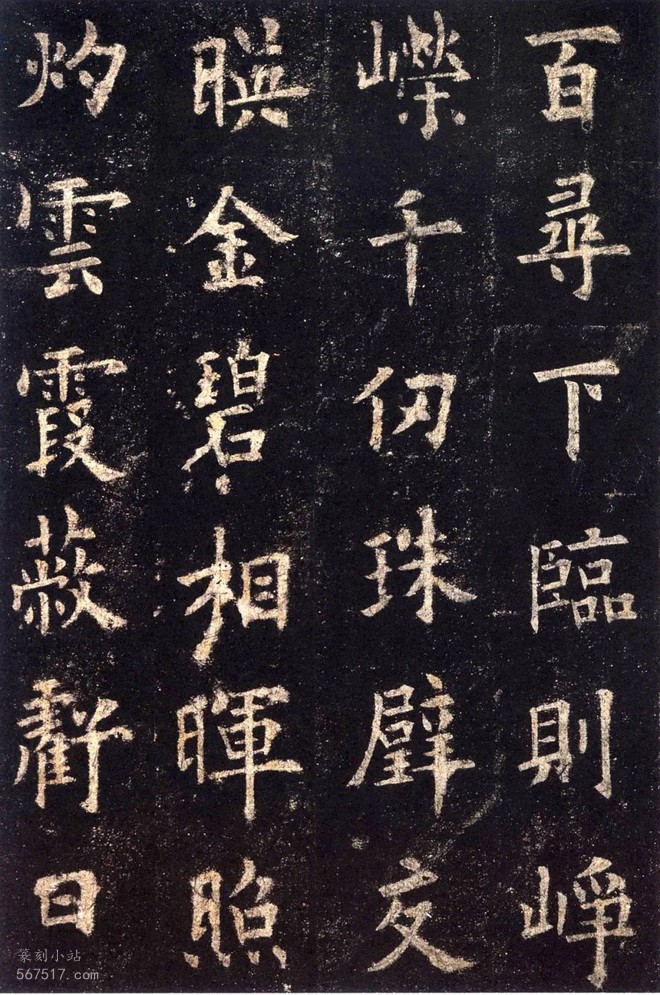 百尋下臨則崢
嶸千仞珠壁交
暎金碧相暉照
灼雲霞蔽虧日
篆刻小站
567517.com